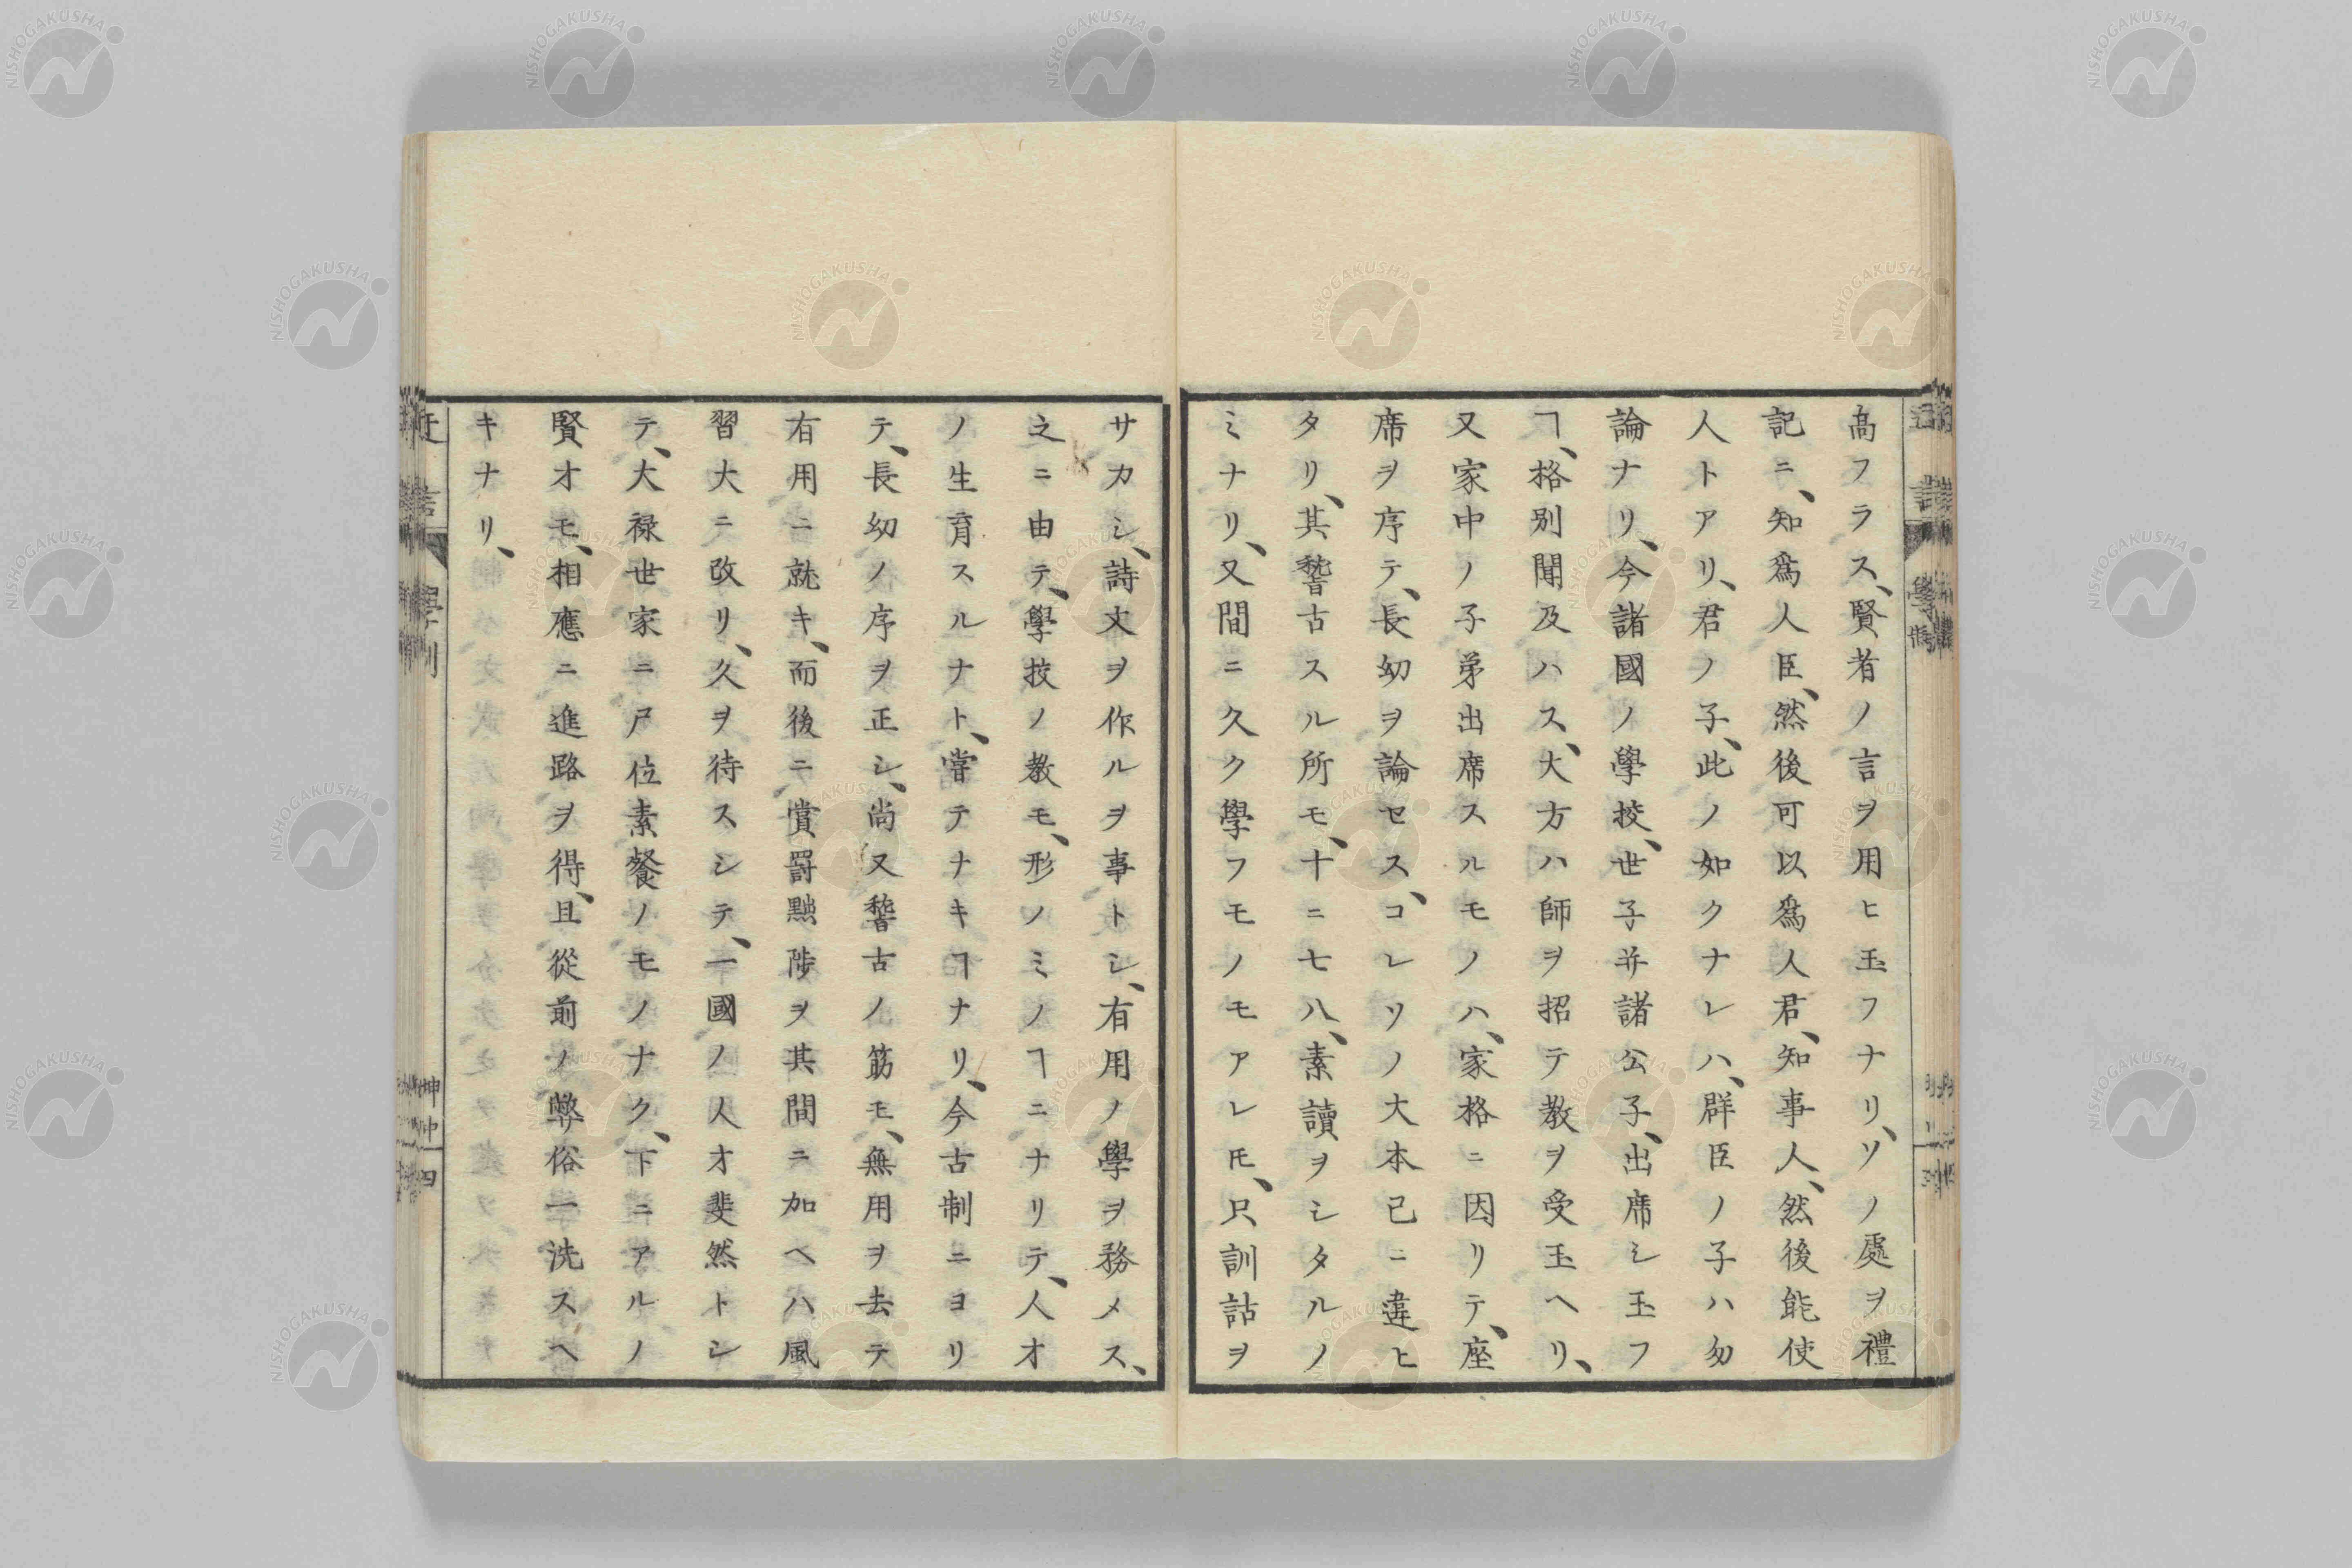 髙フラス、賢者ノ言ヲ用ヒ玉フナリ、ソノ處ヲ禮
記ニ、知爲人臣、然後可以爲人君、知事人、然後能使
人トアリ、君ノ子、此ノ如クナレハ、群臣ノ子ハ勿
論ナリ、今諸國ノ學挍、世子并諸公子、出席シ玉フ
ヿ、格別聞及ハス、大方ハ師ヲ招テ教ヲ受玉ヘリ、
又家中ノ子弟出席スルモノハ、家格ニ因リテ、座
席ヲ序テ、長幼ヲ論セス、コレソノ大本已ニ違ヒ
タリ、其𥡴古スル所モ、十ニ七八、素讀ヲシタルノ
ミナリ、又間ニ久ク學フモノモアレ𪜈、只訓詁ヲ
サカシ、詩文ヲ作ルヲ事トシ、有用ノ學ヲ務メス、
之ニ由テ、學挍ノ教モ、形ノミノヿニナリテ、人才
ノ生育スルナト、嘗テナキヿナリ、今古制ニヨリ
テ、長幼ノ序ヲ正シ、尚又𥡴古ノ筋モ、無用ヲ去テ
有用ニ就キ、而後ニ賞罰黜陟ヲ其間ニ加ヘハ風
習大ニ改リ、久ヲ待スシテ、一國ノ人才斐然トシ
テ、大禄世家ニ尸位素餐ノモノナク、下ニアルノ
賢才モ、相應ニ進路ヲ得、且從前ノ弊俗一洗スヘ
キナリ、